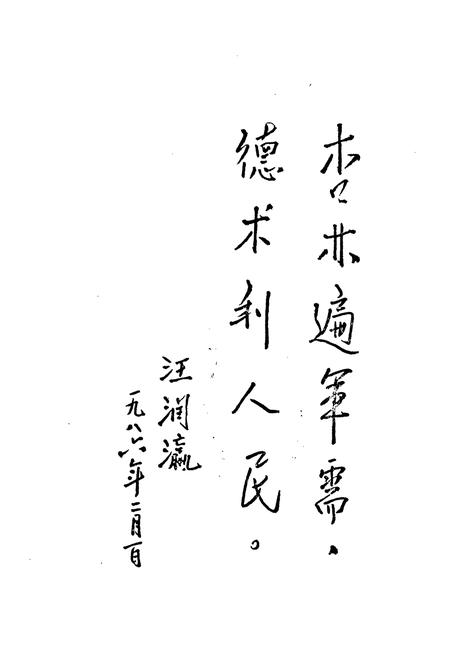 杏林遍军需、
德术利人民。
汪润瀛
一九八六年二月一日